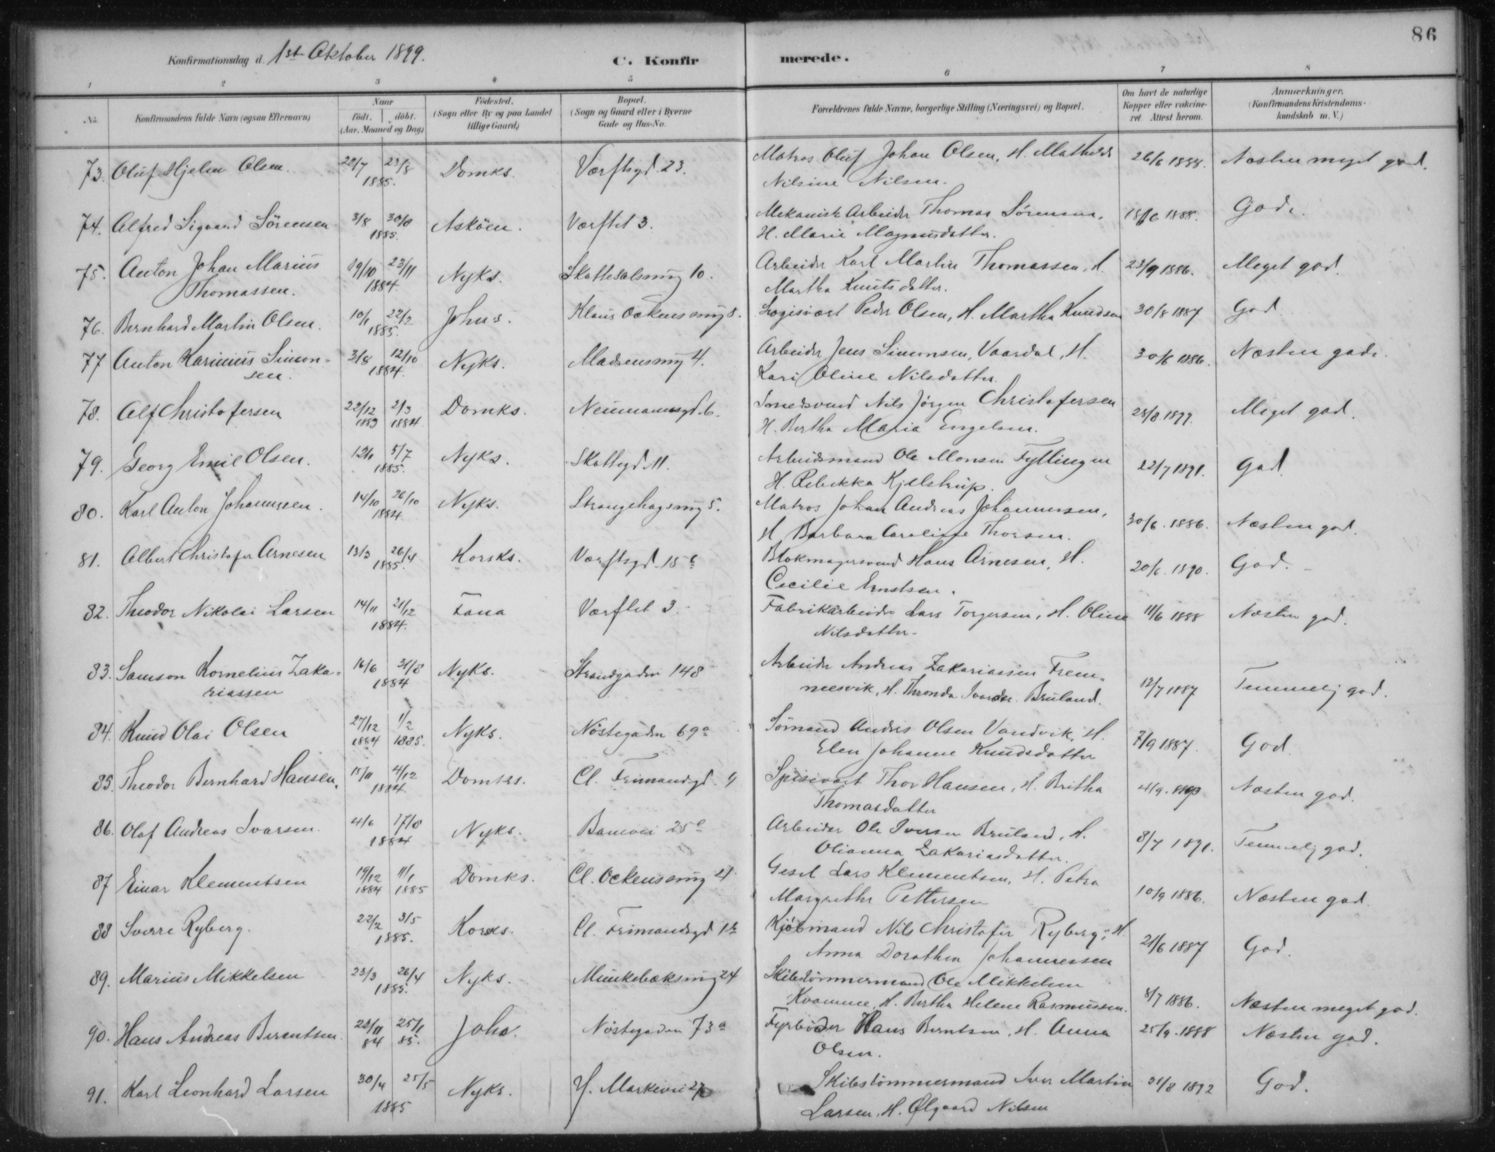 86
Konfirmationsdag d. 1st Oktober 1899.
C. Konfirmerede.
1 2 3 4 5 6 7 8
No. Konfirmandens fulde Navn (ogsaa Efternavn) Naar født. døbt. (Aar, Maaned og Dag) Fødested. (Sogn eller By og paa Landet tillige Gaard) Bopæl. (Sogn og Gaard eller i Byerne Gade og Hus-No. Forældrenes fulde Navne, borgerlige Stilling (Næringsvei) og Bopæl. Om havt de naturlige Kopper eller vakcineret Attest herom. Anmærkninger. (Konfirmandens Kristendomskundskab m. V.)
73. Oluf Hjelm Olsen. 22/7 23/8 1885. Domks. Værftsgd. 23. Matros Oluf Johan Olsen, H. Mathilde 26/6 1888. Næsten meget god.
Nilsine Nilsen.
74. Alfred Sigvard Sörensen 3/8 30/8 1885. Asköen. Værftet 3. Mekanisk Arbeider Thomas Sörensen, 1888. God.
H. Marie Magnusdatter.
75. Anton Johan Marius 19/10 23/11 1884 Nyks. Skottesalsmug 10. Arbeider Karl Martin Thomassen, H. 23/9 1886. Meget god.
Thomassen. Martha Knutsdatter.
76. Bernhard Martin Olsen. 10/1 22/2 1885 Johs. Klaus Ockensmug 8. Logisvært Peder Olsen, H. Martha Knudsen 30/8 1887 God
77 Anton Karinius Simonsen. 3/8 12/10 1884. Nyks. Madsensmug 4. Arbeider Jens Simonsen, Vaardal, H. 30/6 1886. Næsten god.
Kari Oline Nilsdatter.
78. Alf Christofersen 22/12 1883 2/3 1884 Domks. Neumannsgd. 6. Smedsvend Nils Jörgen Christofersen 28/8 Meget god.
H. Bertha Maria Engelsen.
79. Georg Emil Olsen. 12/6 5/7 1885. Nyks. Skottegd. 11. Arbeidsmand Ole Monsen Fyllingen 22/7 1891. God
H. Rebekka Kjelstrup.
80. Karl Anton Johannesen. 14/10 26/10 1884. Nyks. Strangehagsmug 5. Matros Johan Andreas Johannesen, 30/6. 1886. Næsten god.
H. Barbara Caroline Thorsen.
81. Albert Christofer Arnesen 13/3 26/4 1885. Korsks. Værftsgd. 15 Blokmagersvend Hans Arnesen, H. 20/6. 1890. God.
Cecilie Erntsen.
82. Theodor Nikolai Larsen 14/11 21/12 1884. Fana Værftet 3. Fabrikarbeider Lars Torgersen, H. Oline 11/6 1888 Næsten god.
Nilsdatter.
83. Samson Kornelius Zakariassen 16/6 31/8 1884 Nyks. Strandgaden 148 Arbeider Andreas Zakariassen 12/7 1887 Temmelig god.
H. Bruland.
84. Knud Olai Olsen 27/12 1884 1/2 1885. Nyks. Nöstegaden 69a Sömand Anders Olsen Vandvik, H. 7/9 1887. God.
Elen Johanne Knudsdatter
85. Theodor Bernhard Hansen. 4/12 1884. Domks. Cl. Frimandsgd. 9 Spisevært Thor Hansen, H. Britha Næsten god.
Thomasdatter
86. Olaf Andreas Ivarsen. 4/6 17/8 1884 Nyks. Banevei 25 Arbeider Ole Iversen Bruland, H. 8/7 1891. Temmelig god.
Olianna Zakariasdatter.
87 Einar Klementsen 19/12 1884 11/1 1885 Domks. Cl. Ockensmug 4 Gesel Lars Klementsen, H. Petra 10/9 1886. Næsten god.
Margrethe Pettersen
88 Sverre Ryberg. 22/2 3/5 1885. Korsks. Cl. Frimandsgd. Kjöbmand Nils Christofer Ryberg, H. 21/6 1887 God.
Anna Dorothea Johannessen
89. Marius Mikkelsen 23/3 26/4 1885. Nyks. Munkebæksmug 24 Skibstömmermand Ole Mikkelsen
Kvamme, H. Bertha Helene Rasmussen. 8/7 1886. Næsten meget god.
90. Hans Andreas Berentsen. 22/11 84 25/1 85. Johs. Nöstegaden 73a Fyrböder Hans Berntsen, H. Anna 25/9. 1888 Næsten god.
Olsen.
91. Karl Leonhard Larsen 30/4 25/5 1885 Nyks. Y. Markevei Skibstömmermand Iver Martin 31/8 1892 God.
Larsen, H. Ølgaard Nilsen